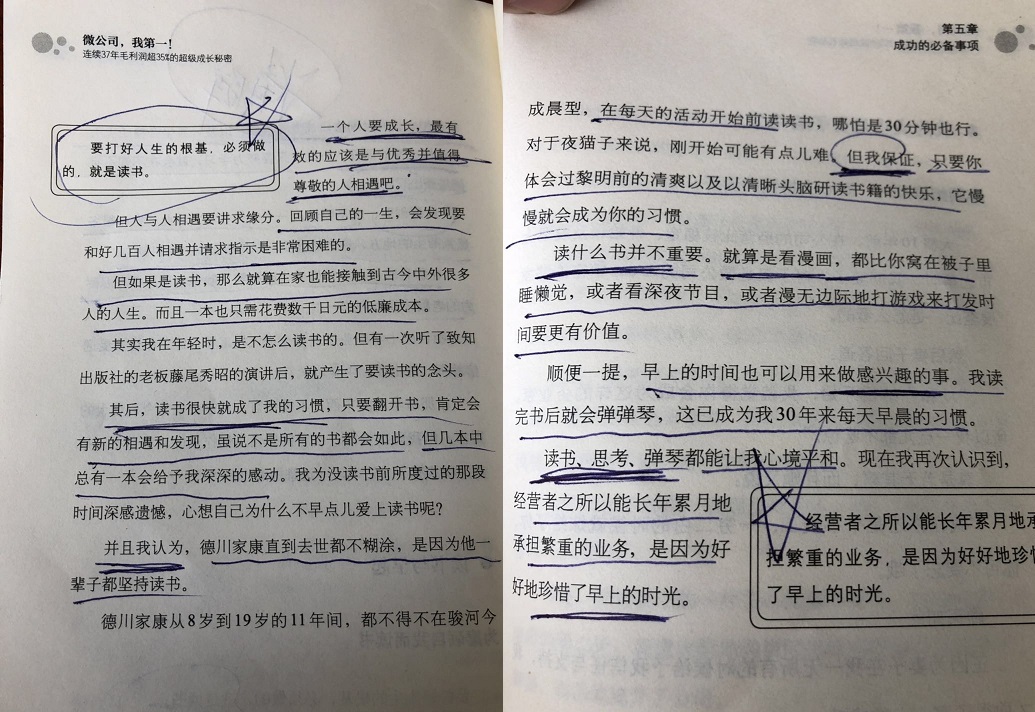 微公司，我第一！
连续37年毛利润超35%的超级成长秘密
要打好人生的根基，必须做
的，就是读书。
一个人要成长，最有
效的应该是与优秀并值得
尊敬的人相遇吧。
但人与人相遇要讲求缘分。回顾自己的一生，会发现要
和好几百人相遇并请求指示是非常困难的。
但如果是读书，那么就算在家也能接触到古今中外很多
人的人生。而且一本也只需花费数千日元的低廉成本。
其实我在年轻时，是不怎么读书的。但有一次听了致知
出版社的老板藤尾秀昭的演讲后，就产生了要读书的念头。
其后，读书很快就成了我的习惯，只要翻开书，肯定会
有新的相遇和发现，虽说不是所有的书都会如此，但几本中
总有一本会给予我深深的感动。我为没读书前所度过的那段
时间深感遗憾，心想自己为什么不早点儿爱上读书呢？
并且我认为，德川家康直到去世都不糊涂，是因为他一
辈子都坚持读书。
德川家康从8岁到19岁的11年间，都不得不在骏河今
第五章
成功的必备事项
成晨型，在每天的活动开始前读读书，哪怕是30分钟也行。
对于夜猫子来说，刚开始可能有点儿难，但我保证，只要你
体会过黎明前的清爽以及以清晰头脑研读书籍的快乐，它慢
慢就会成为你的习惯。
读什么书并不重要。就算是看漫画，都比你窝在被子里
睡懒觉，或者看深夜节目，或者漫无边际地打游戏来打发时
间要更有价值。
顺便一提，早上的时间也可以用来做感兴趣的事。我读
完书后就会弹弹琴，这已成为我30年来每天早晨的习惯。
读书、思考、弹琴都能让我心境平和。现在我再次认识到，
经营者之所以能长年累月地
承担繁重的业务，是因为好
好地珍惜了早上的时光。
经营者之所以能长年累月地承
担繁重的业务，是因为好好地珍惜
了早上的时光。